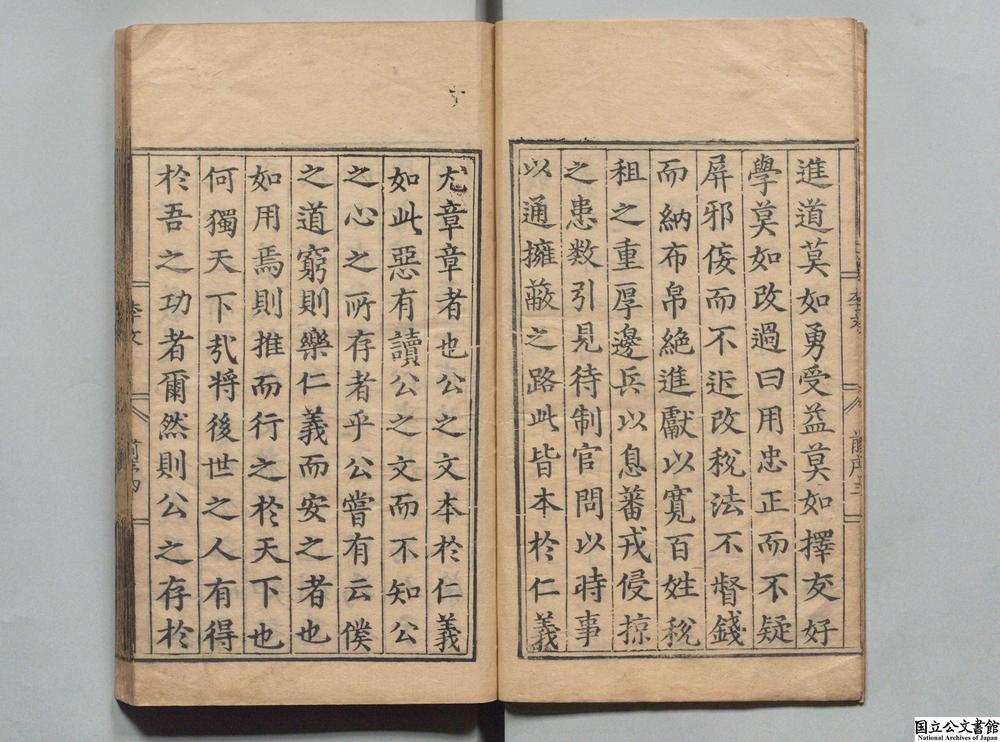 進道莫如勇受益莫如擇友好
學莫如改過曰用忠正而不疑
屏邪佞而不近改稅法不督錢
而納布帛絶進獻以寬百姓稅
租之重厚邊兵以息蕃戎侵掠
之患数引見待制官問以時事
以通擁蔽之路此皆本於仁義
尤章章者也公之文本於仁義
如此惡有讀公之文而不知公
之心之所存者乎公嘗有云僕
之道窮則樂仁義而安之者也
如用焉則推而行之於天下也
何獨天下㢤將後世之人有得
於吾之功者爾然則公之存於
李文
前序四
国立公文書館
National Archives of Japan